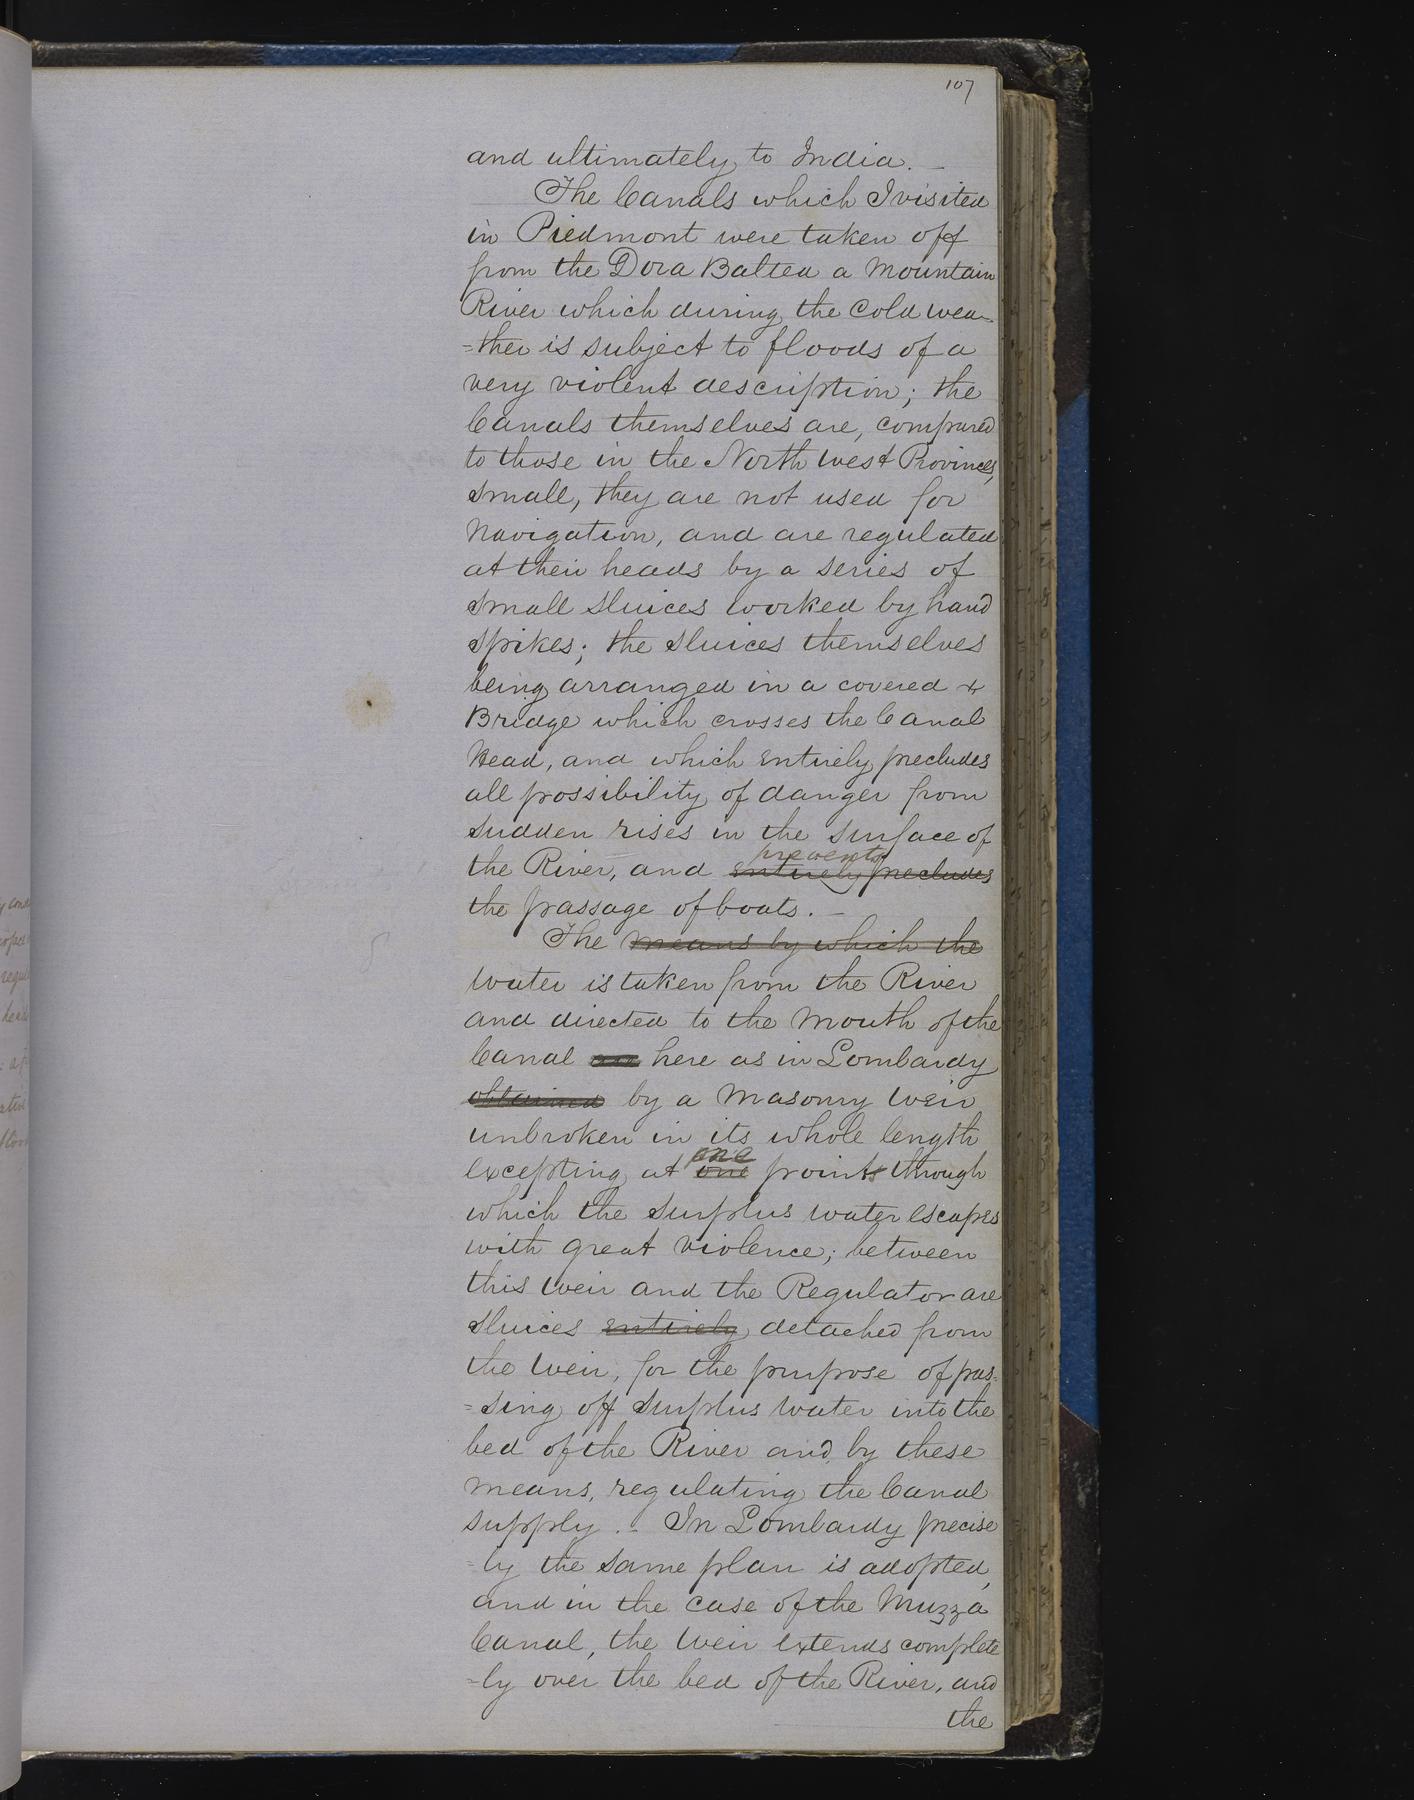 107
and ultimately to India. –
The Canals which I visited
in Piedmont were taken off
from the Dora Baltea a Mountain
River which during the Cold wea-
=ther is subject to floods of a
very violent description; the
Canals themselves are, compared
to those in the North West Provinces,
small, they are not used for
Navigation, and are regulated
at their heads by a series of
small sluices worked by hand
spikes; the sluices themselves
being arranged in a covered
Bridge which crosses the Canal
Head, and which entirely precludes
all possibility of danger from
sudden rises in the surface of
prevents
the River, and entirely precludes
the passage of boats. –
The means by which the
water is taken from the River
and directed to the Mouth of the
Canal are here as in Lombardy
obtained by a Masonry Weir
unbroken in its whole length
one
excepting at one points through
which the surplus water escapes
with great violence; between
this Weir and the Regulator are
sluices entirely detached from
the Weir, for the purpose of pas-
=sing off surplus water into the
bed of the River and by these
means, regulating the Canal
supply. – In Lombardy precise
=ly the same plan is adopted,
and in the case of the Muzza
Canal, the Weir extends complete
=ly over the bed of the River, and
the